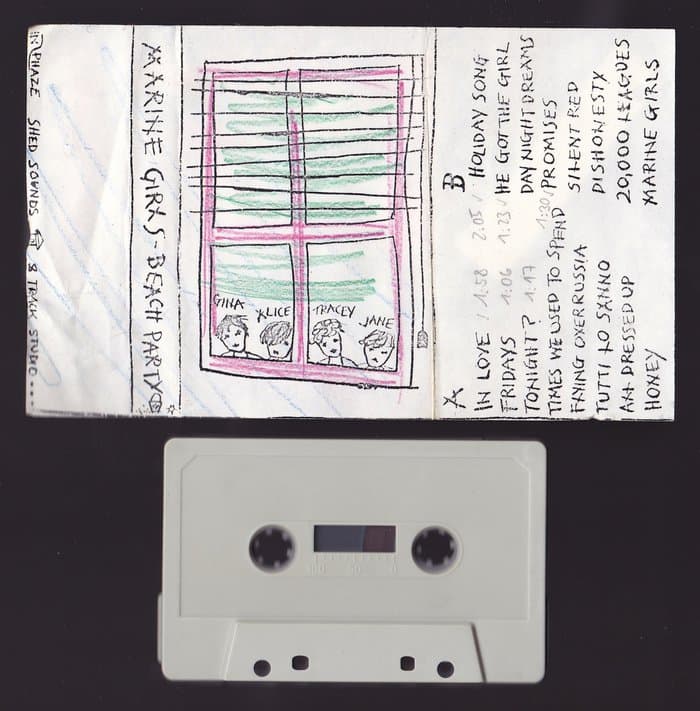 IN PHAZE SHED SOUNDS 8 TRACK STUDIO....
MARINE GIRLS - BEACH PARTY
GINA
ALICE
TRACEY
JANE
A
IN LOVE 1:58
FRIDAYS 1:06
TONIGHT? 1:17
TIMES WE USED TO SPEND 1:30
FLYING OVER RUSSIA
TUTTI LO SANNO
ALL DRESSED UP
HONEY
B
2.05 HOLIDAY SONG
1.23 HE GOT THE GIRL
DAY NIGHT DREAMS
PROMISES
SILENT RED
DISHONESTY
20,000 LEAGUES
MARINE GIRLS